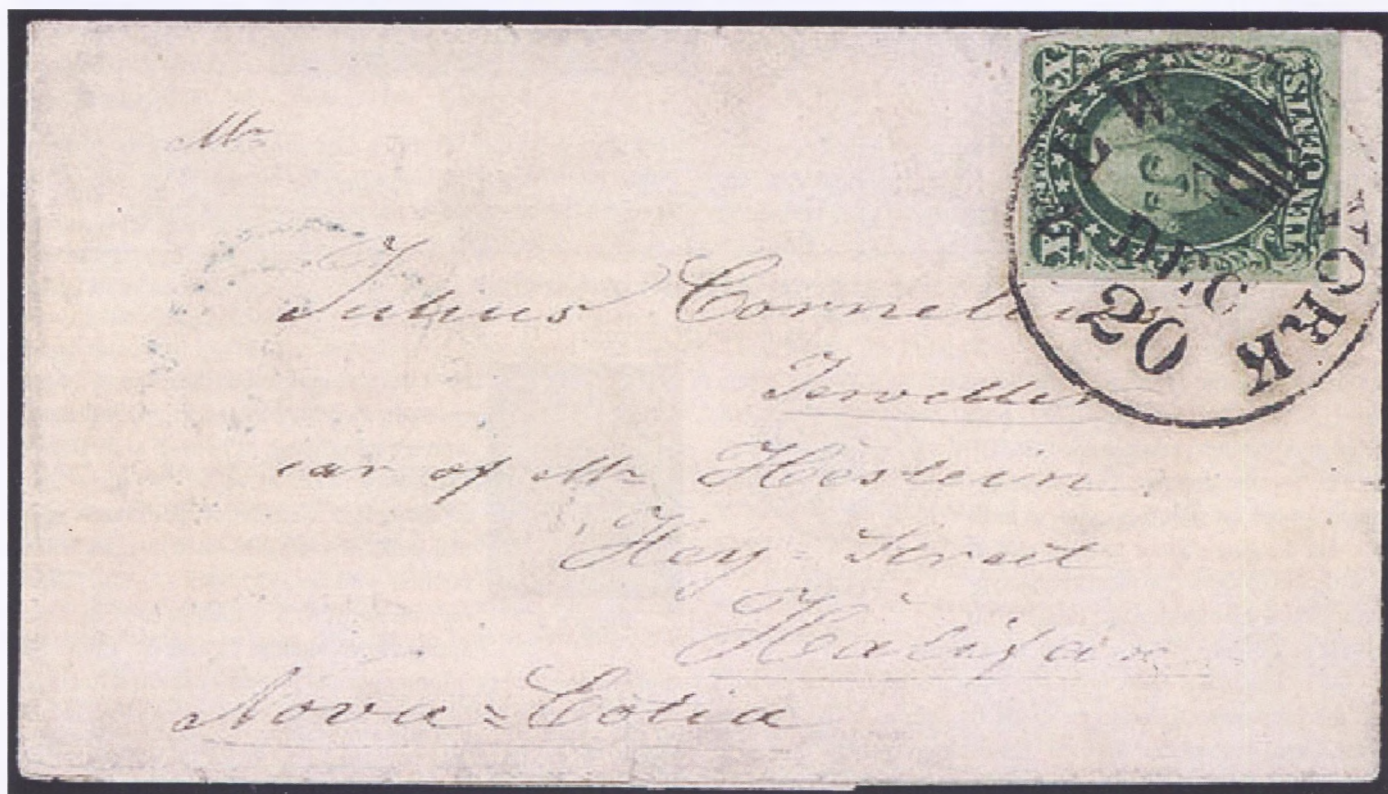 Mr
Julius Cornelius
Jeweller
car of Mr Hostein
Hey=Street
Halifax
Nova=Cotia
NEW YORK
DEC
20
TEN CENTS
X
X